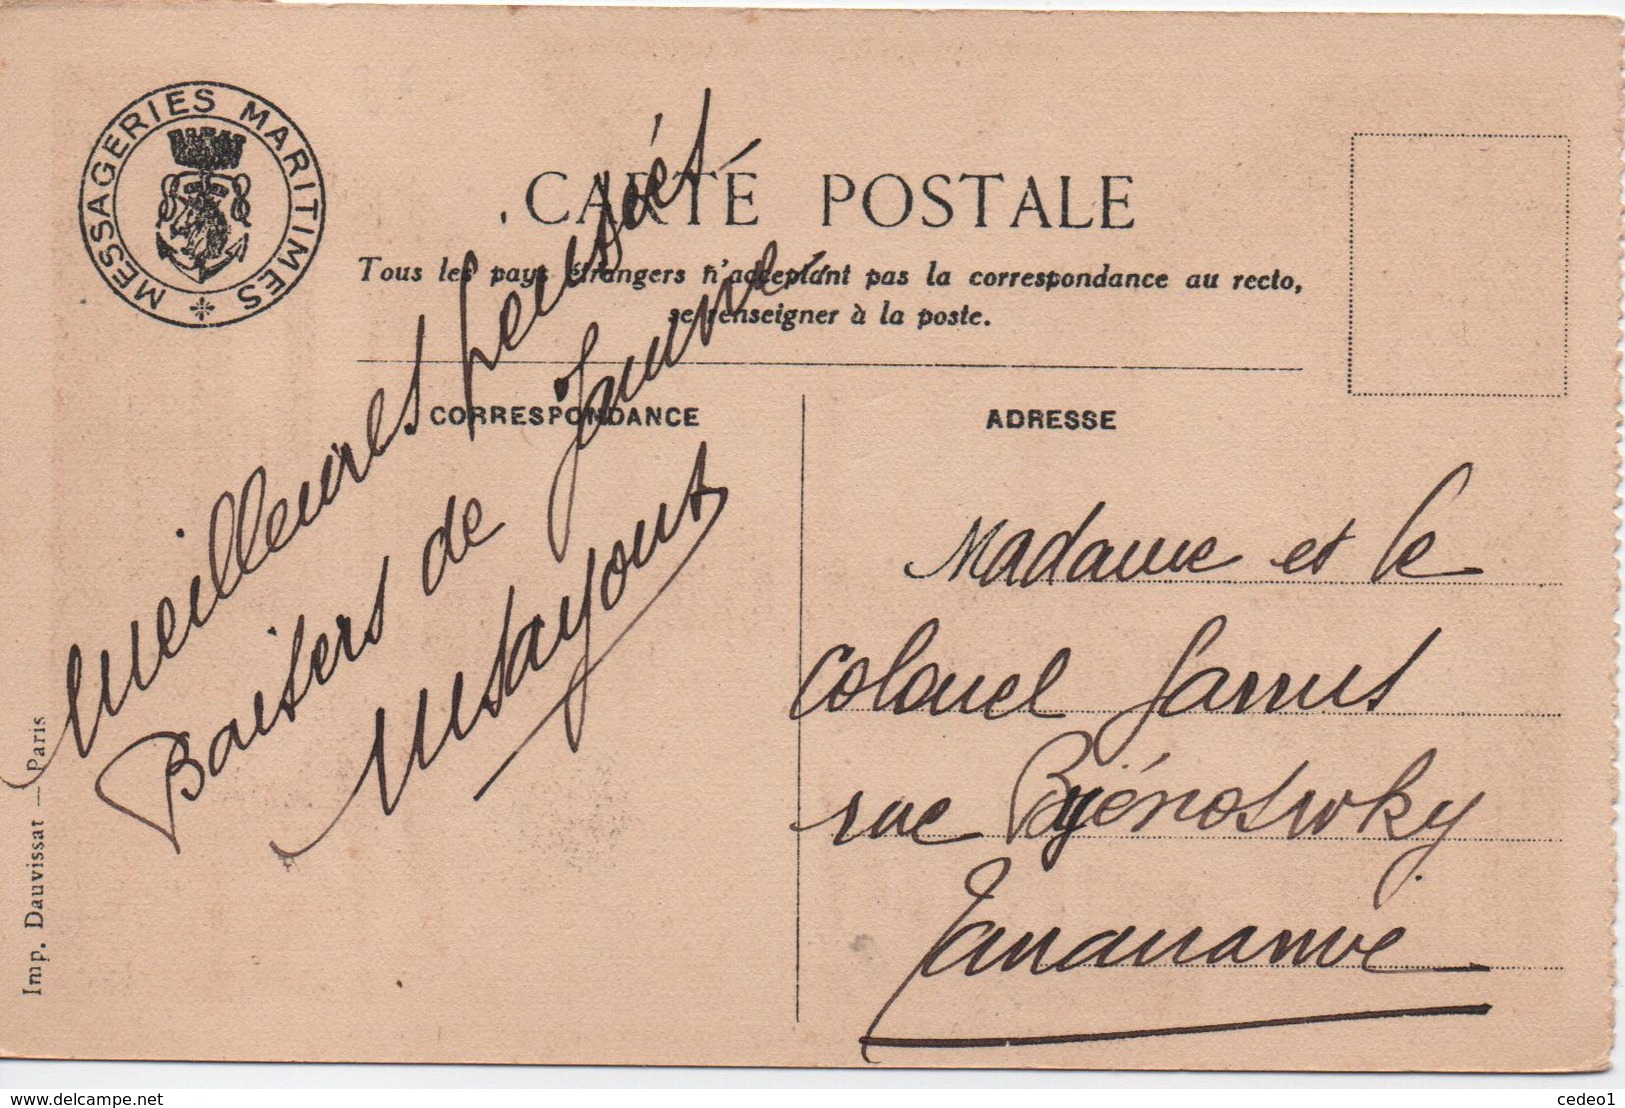 MESSAGERIES MARITIMES
CARTE POSTALE
Tous les pays étrangers n'acceptant pas la correspondance au recto,
se renseigner à la poste.
CORRESPONDANCE
ADRESSE
Meilleures pensées
Baisers de
Madame et le
Colonel
rue Byénoswky
Tananarive
Imp. Dauvissat — Paris
www.delcampe.net
cedeo1